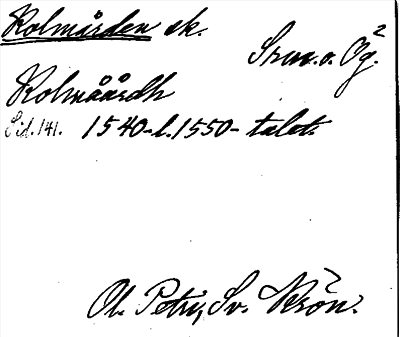 Kolmården sk.
Srm. o. Ög.
Kolmåårdh
Sid. 141. 1540-l. 1550-talet.
Ol. Petri, Sv. Krön.